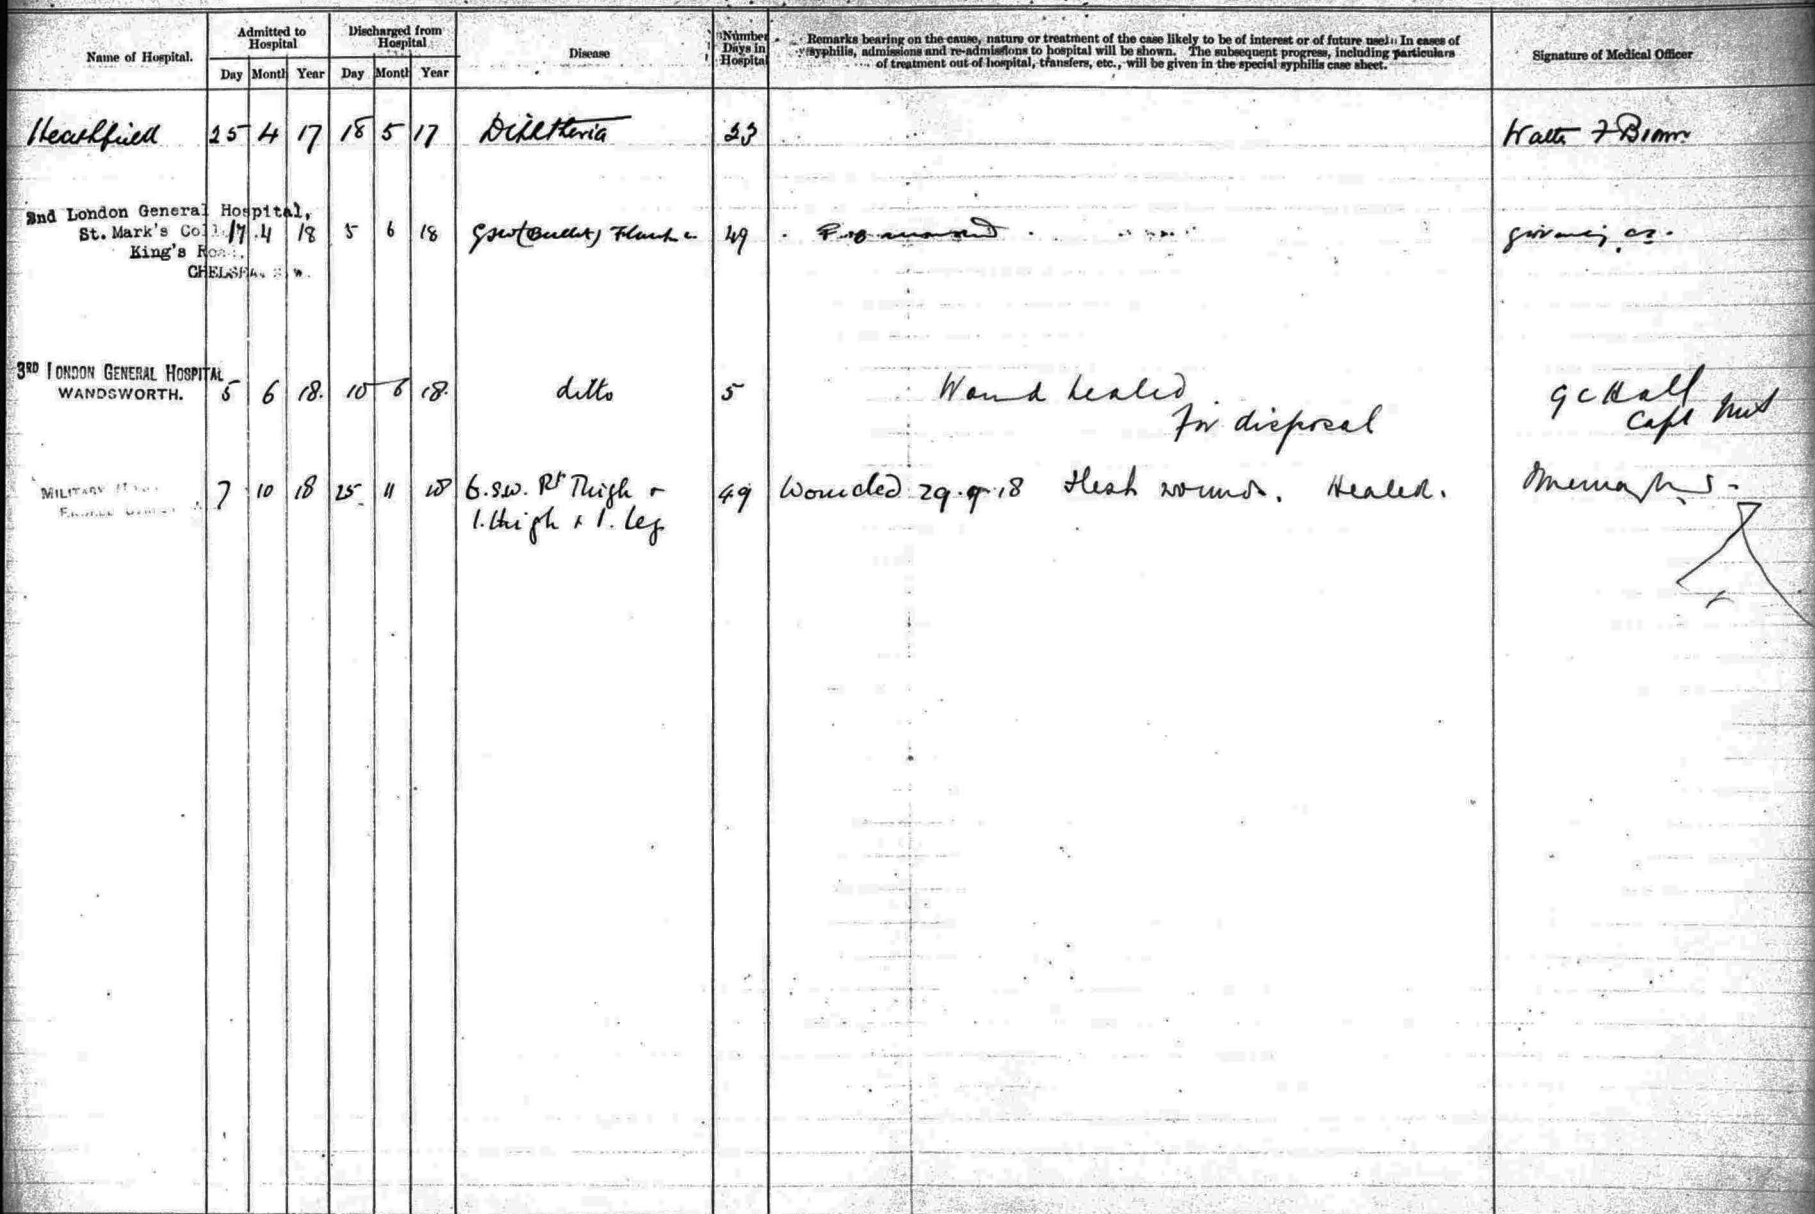 Name of Hospital.
Admitted to Hospital
Discharged from Hospital
Disease
Number Days in Hospital
Remarks bearing on the cause, nature or treatment of the case likely to be of interest or of future use. In cases of
syphilis, admissions and re-admissions to hospital will be shown. The subsequent progress, including particulars
of treatment out of hospital, transfers, etc., will be given in the special syphilis case sheet.
Signature of Medical Officer
Day Month Year Day Month Year
Heathfield 25 4 17 18 5 17 Diphtheria 23 Walter F Brown
2nd London General Hospital,
St. Mark's Coll 17 4 18 5 6 18 GSW (Bullet) 49
King's Road.
CHELSEA. S.W.
3RD LONDON GENERAL HOSPITAL
WANDSWORTH. 5 6 18. 10 6 18. ditto 5 Wound healed
For disposal
G C Hall
Capt
MILITARY 7 10 18 25 11 18 G.S.W. Rt Thigh + 49 Wounded 29.9.18 Flesh wounds. Healed.
l. thigh + l. leg